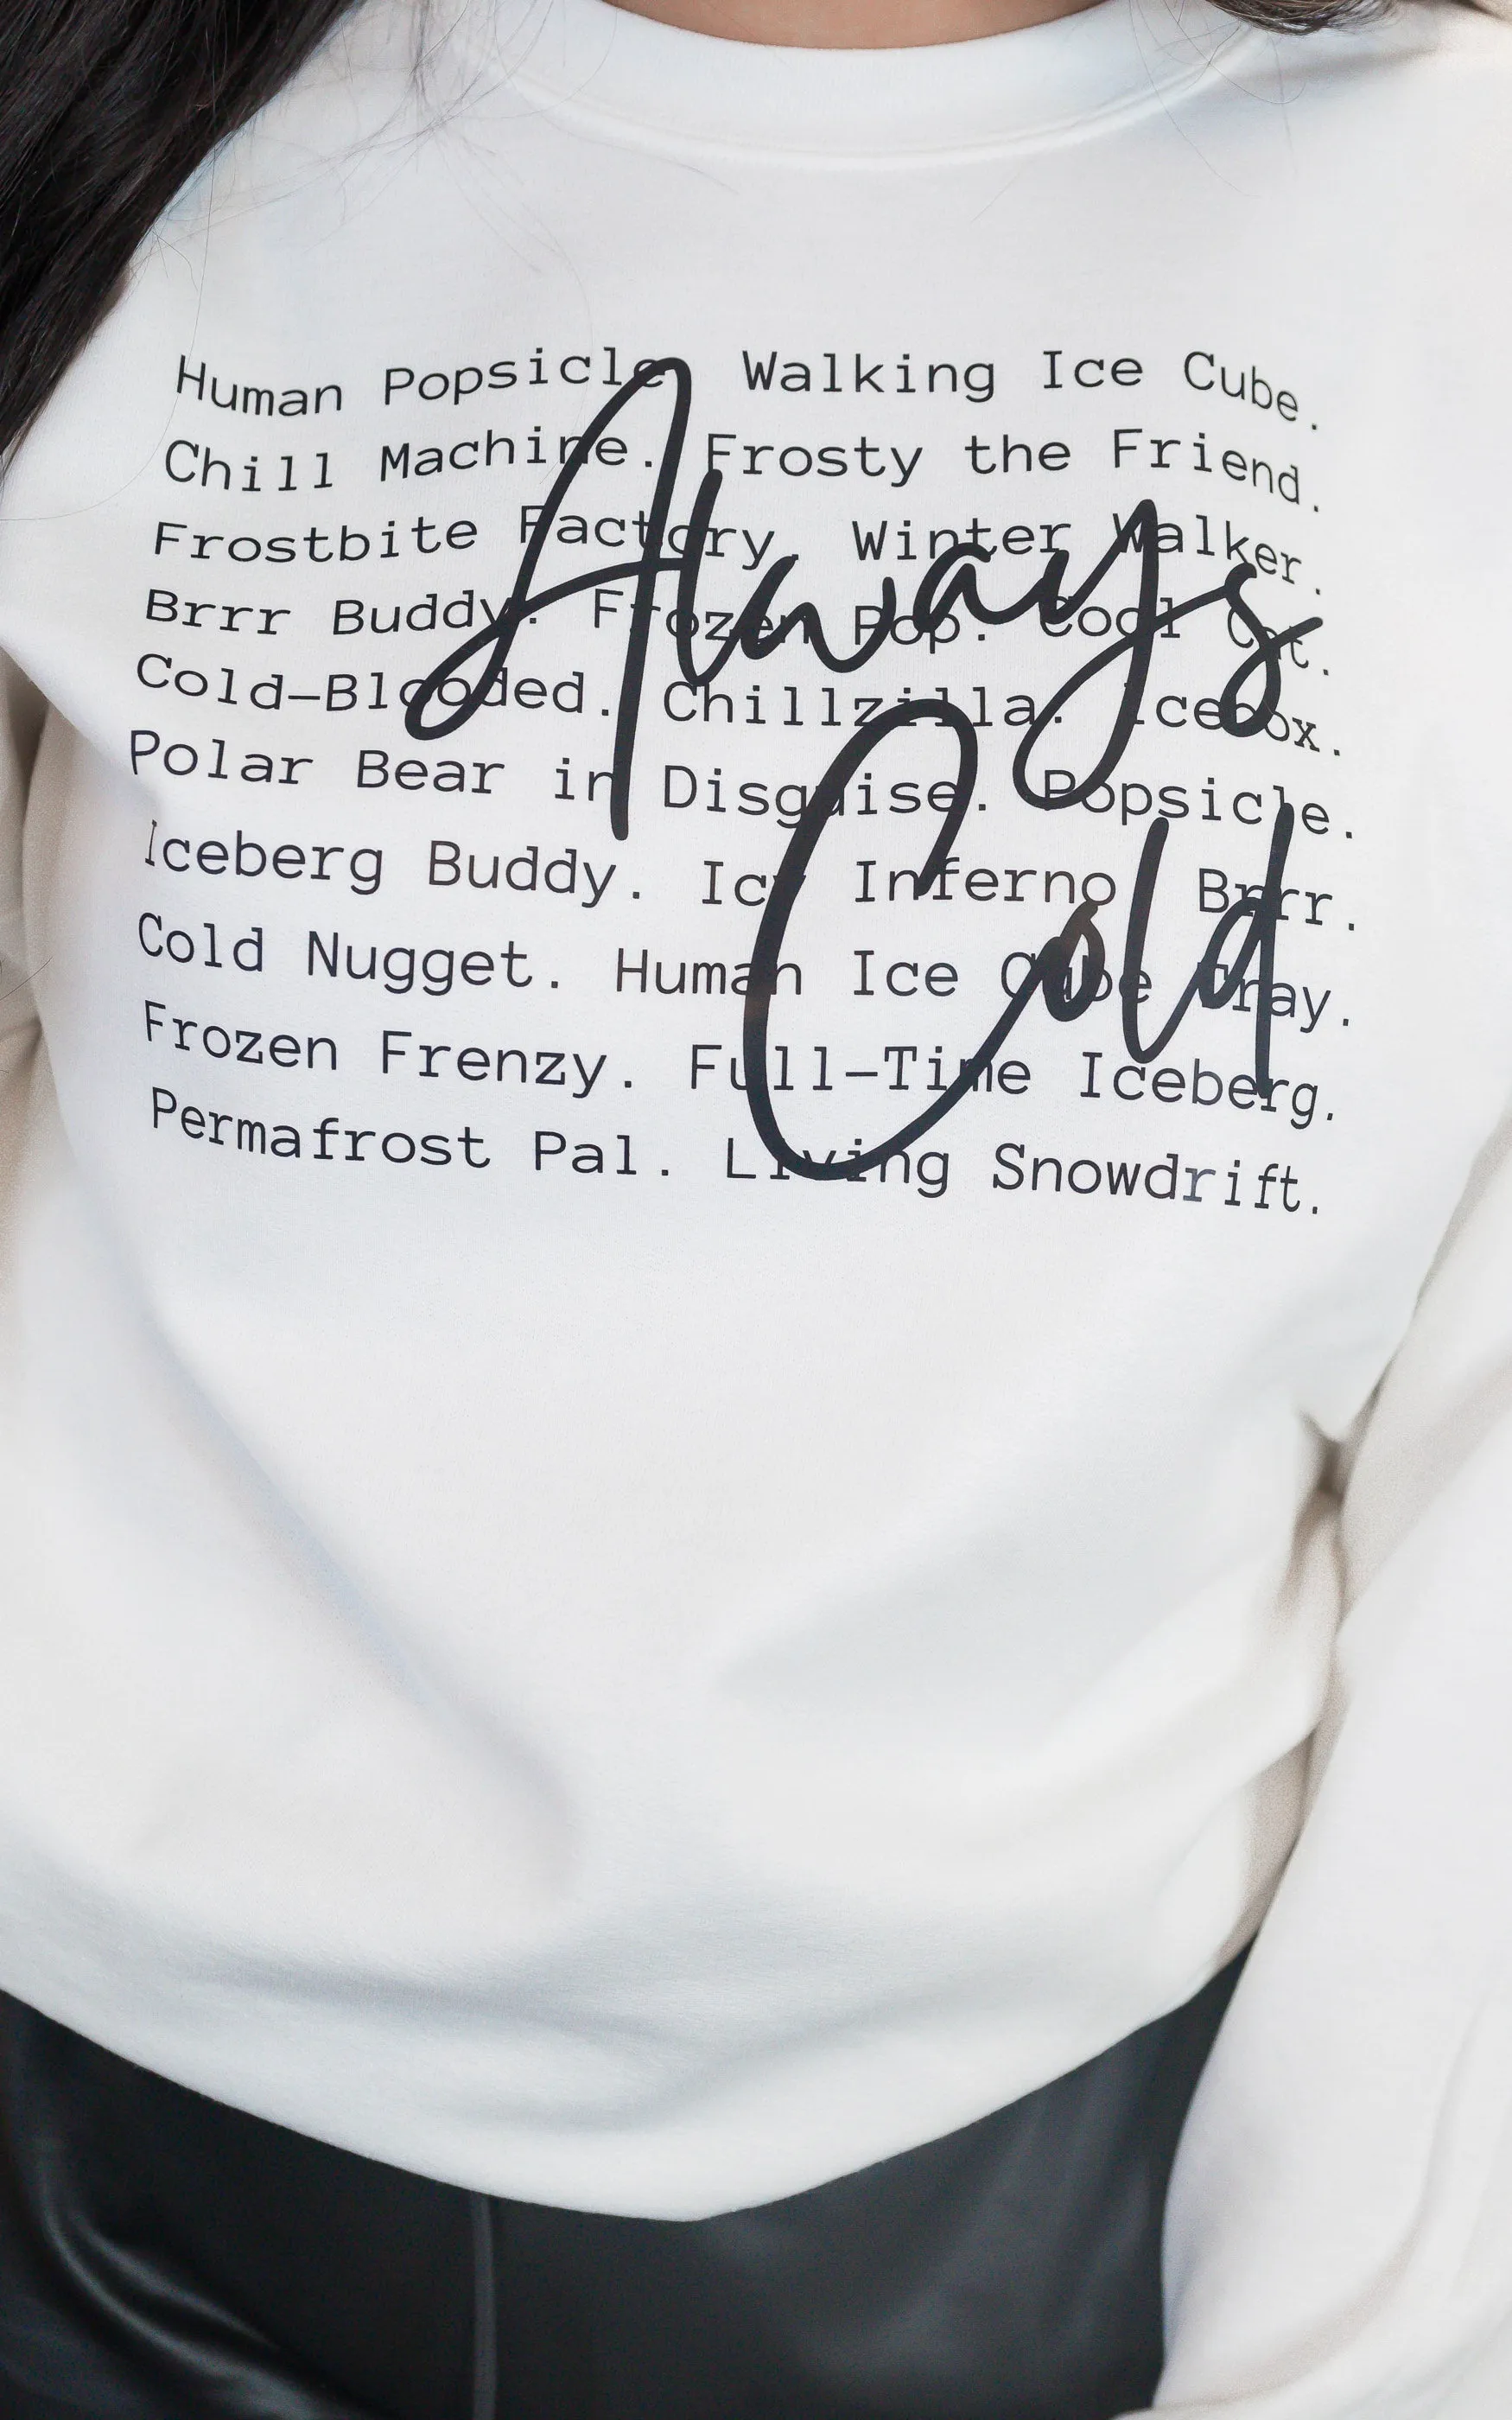 Human Popsicle. Walking Ice Cube.
Chill Machine. Frosty the Friend.
Frostbite Factory. Winter Walker.
Brrr Buddy. Frozen Pop. Cool Cat.
Cold-Blooded. Chillzilla. Icebox.
Polar Bear in Disguise. Popsicle.
Iceberg Buddy. Icy Inferno. Brrr.
Cold Nugget. Human Ice Cube Tray.
Frozen Frenzy. Full-Time Iceberg.
Permafrost Pal. Living Snowdrift.
Always
Cold